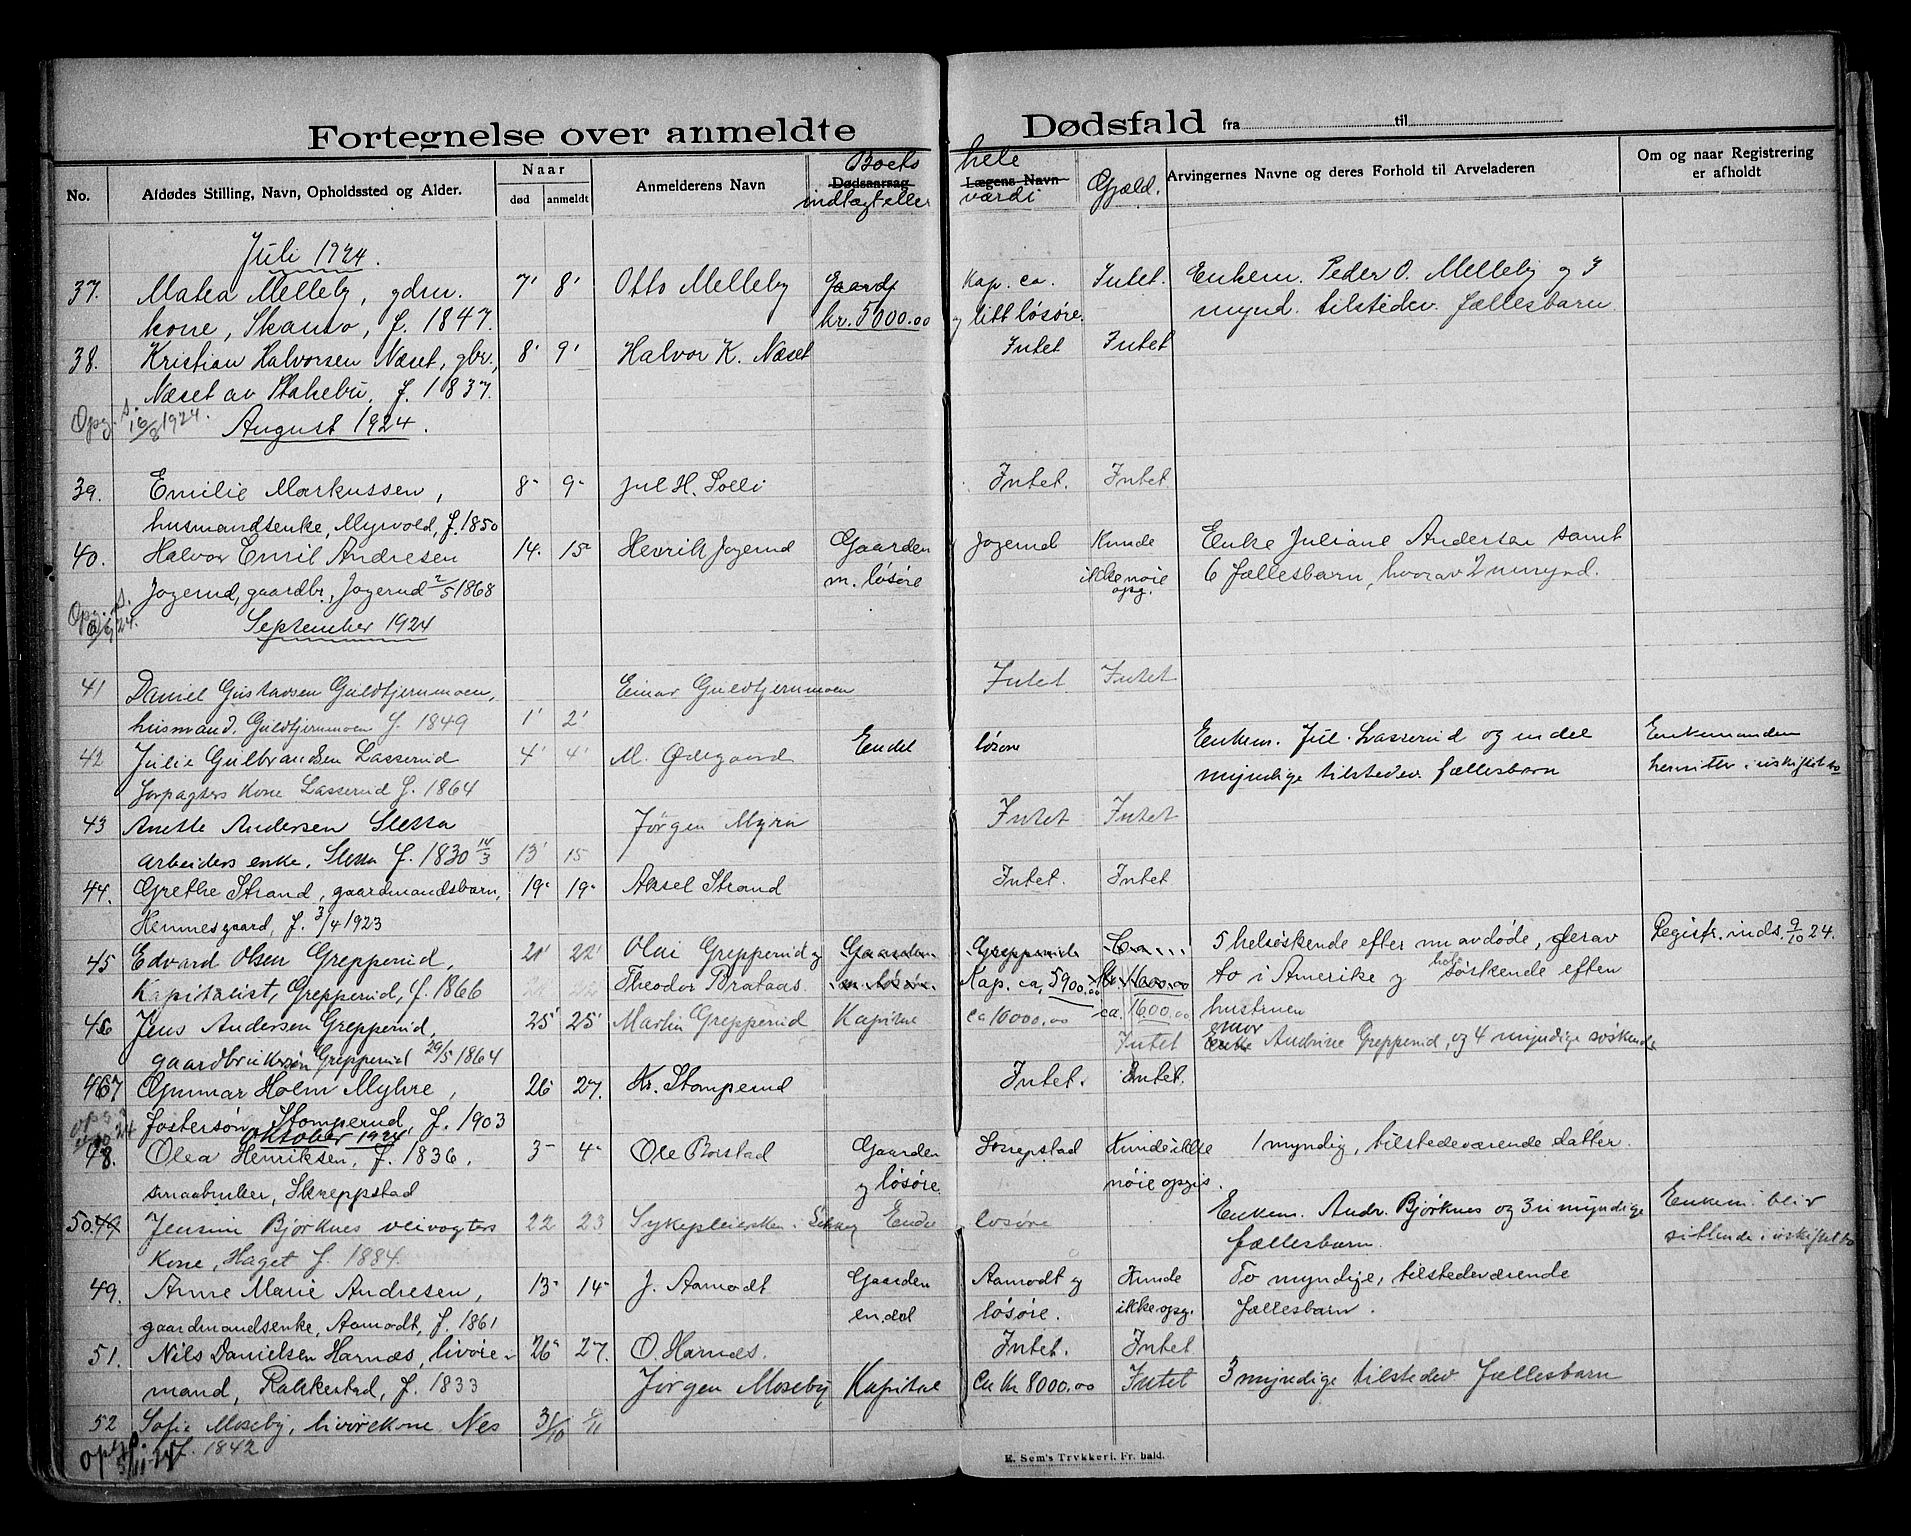 Fortegnelse over anmeldte Dødsfald fra til
No. Afdødes Stilling, Navn, Opholdssted og Alder. Naar død anmeldt Anmelderens Navn Dødsaarsag Boets indtægt eller Lægens Navn hele værdi Gjæld. Arvingernes Navne og deres Forhold til Arveladeren Om og naar Registrering er afholdt
Juli 1924.
37. Matea Melleby, gdm. 7' 8' Otto Melleby Gaardp Kap. ca. Intet. Enkem. Peder O. Melleby og 3
kone, f. 1847. kr. 5000.00 og litt løsøre. mynd. tilstedev. fællesbarn
38. Kristian Halvorsen Næset, gbr., 8' 9' Halvor K. Næset Intet Intet
Næset av f. 1837.
Opg. s. 16/8 1924. August 1924.
39. Emilie Markussen, 8- 9- Jul H. Solli Intet. Intet.
husmandsenke, Myrvold, f. 1850
40. Halvor Emil Andresen 14. 15- Henrik Jogerud Gaarden Jogerud Kunde Enke Juliane Andersen samt
Jogerud, gaardbr., Jogerud 2/5 1868 m. løsøre ikke nøie opg. 6 fællesbarn, hvorav 2 umynd.
Opg. s. September 1924
41 Daniel Gustavsen Guldtjernmoen, Einar Guldtjernmoen Intet Intet
husmand, Guldtjernmoen f. 1849 1' 2'
42 Julie Gulbrandsen Lasserud 4' 4' M. Ødegaard Endel løsøre Enkem. Jul. Lasserud og endel Enkemanden
Forpagters Kone Lasserud f. 1864 myndige tilstedev. fællesbarn hensitter i uskiftet bo
43 Anette Andersen Sletta Jørgen Myra Intet Intet
arbeiders enke, Sletta f. 1830 14/3 13' 15
44. Grethe Strand, gaardmandsbarn, 19- 19- Aksel Strand Intet. Intet
Hennesgaard, f. 3/4 1923
45 Edvard Olsen Grepperud, 21' 22' Olai Grepperud og Gaarden Grepperud Ca 5 helsøskende efter nu avdøde, derav Registr. inds. 9/10 24.
Kapitalist, Grepperud, f. 1866 Theodor Brataas. m løsøre Kap. ca. 5900.00 kr. 1600.00 to i Amerika og halvsøskende efter
46 Jens Andersen Grepperud, 25' 25' Martin Grepperud Kapital ca 10000.00 ca. 1600.00 hustruen
gaardbrukersøn Grepperud 29/5 1864 Intet Enke emor Andrine Grepperud, og 4 myndige søskende
467 Gunnar Holm Myhre, 26- 27. Kr. Stomperud Intet. Intet.
fostersøn, Stomperud, f. 1903
Oktober 1924
48. Olea Henriksen, f. 1836, 3- 4- Ole Borstad Gaarden Kunde ikke 1 myndig, tilstedeværende datter.
smaabruker, Skreppstad og løsøre. nøie opgis.
50. 49 Jensine Bjørknes veivogters 22 23 Sykepleiersken Endel løsøre Enkem. Andr. Bjørknes og 3 umyndige Enkem. blir
Kone, Haget f. 1884. fællesbarn. sittende i uskiftet bo
49. Anne Marie Andresen, 13- 14- J. Aamodt Gaarden Aamodt og Kunde To myndige, tilstedeværende
gaardmandsenke, Aamodt, f. 1861 endel løsøre. ikke opg. fællesbarn.
51. Nils Danielsen Harnæs, livøre- 26- 27. O. Harnæs. Intet. Intet.
mand, Rakkestad, f. 1833 Jørgen Moseby Kapital Ca kr 8000.00 Intet 3 myndige tilstedev fællesbarn
52 Sofie Moseby, livørekone Nes 31/10
opg. s. 5/11-24 f. 1842
E. Sem's Trykkeri, Fr. hald.